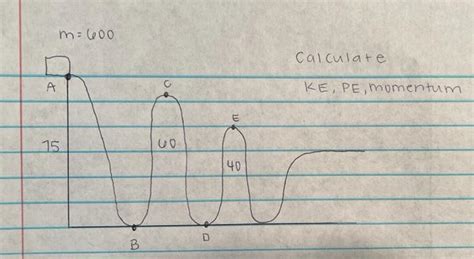 m=600
Calculate
KE, PE, momentum
A
C
E
75
60
40
B
D